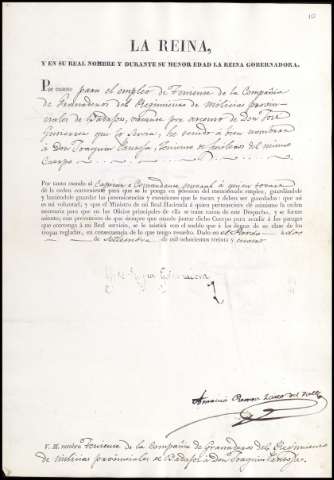 LA REINA,
Y EN SU REAL NOMBRE Y DURANTE SU MENOR EDAD LA REINA GOBERNADORA.
Por cuanto para el empleo de Teniente de la Compañia
de Granaderos del Regimiento de milicias provin-
ciales de Badajoz, vacante por ascenso de Don José
que lo servia, he venido a bien nombrar
á Don Joaquin Teniente de fusileros del mismo
Cuerpo
Por tanto mando al Capitan ó Comandante General á quien tocare
dé la orden conveniente para que se le ponga en posesion del mencionado empleo, guardándole
y haciéndole guardar las preeminencias y exenciones que le tocan y deben ser guardadas: que asi
es mi voluntad; y que el Ministro de mi Real Hacienda á quien perteneciere dé asimismo la orden
necesaria para que en los Oficios principales de ella se tome razon de este Despacho, y se forme
asiento, con prevencion de que siempre que mande poner dicho Cuerpo para acudir á los parages
que convenga á mi Real servicio, se le asistirá con el sueldo que á los demas de su clase de las
tropas regladas, en consecuencia de lo que tengo resuelto. Dado en el Pardo á dos
de Setiembre de mil ochocientos treinta y cuatro
Yo la Reyna Gobernadora
Antonio Ramon Zarco del Valle
V. M. nombra Teniente de la Compañia de Granaderos del Regimiento
de milicias provinciales de Badajoz á Don Joaquin